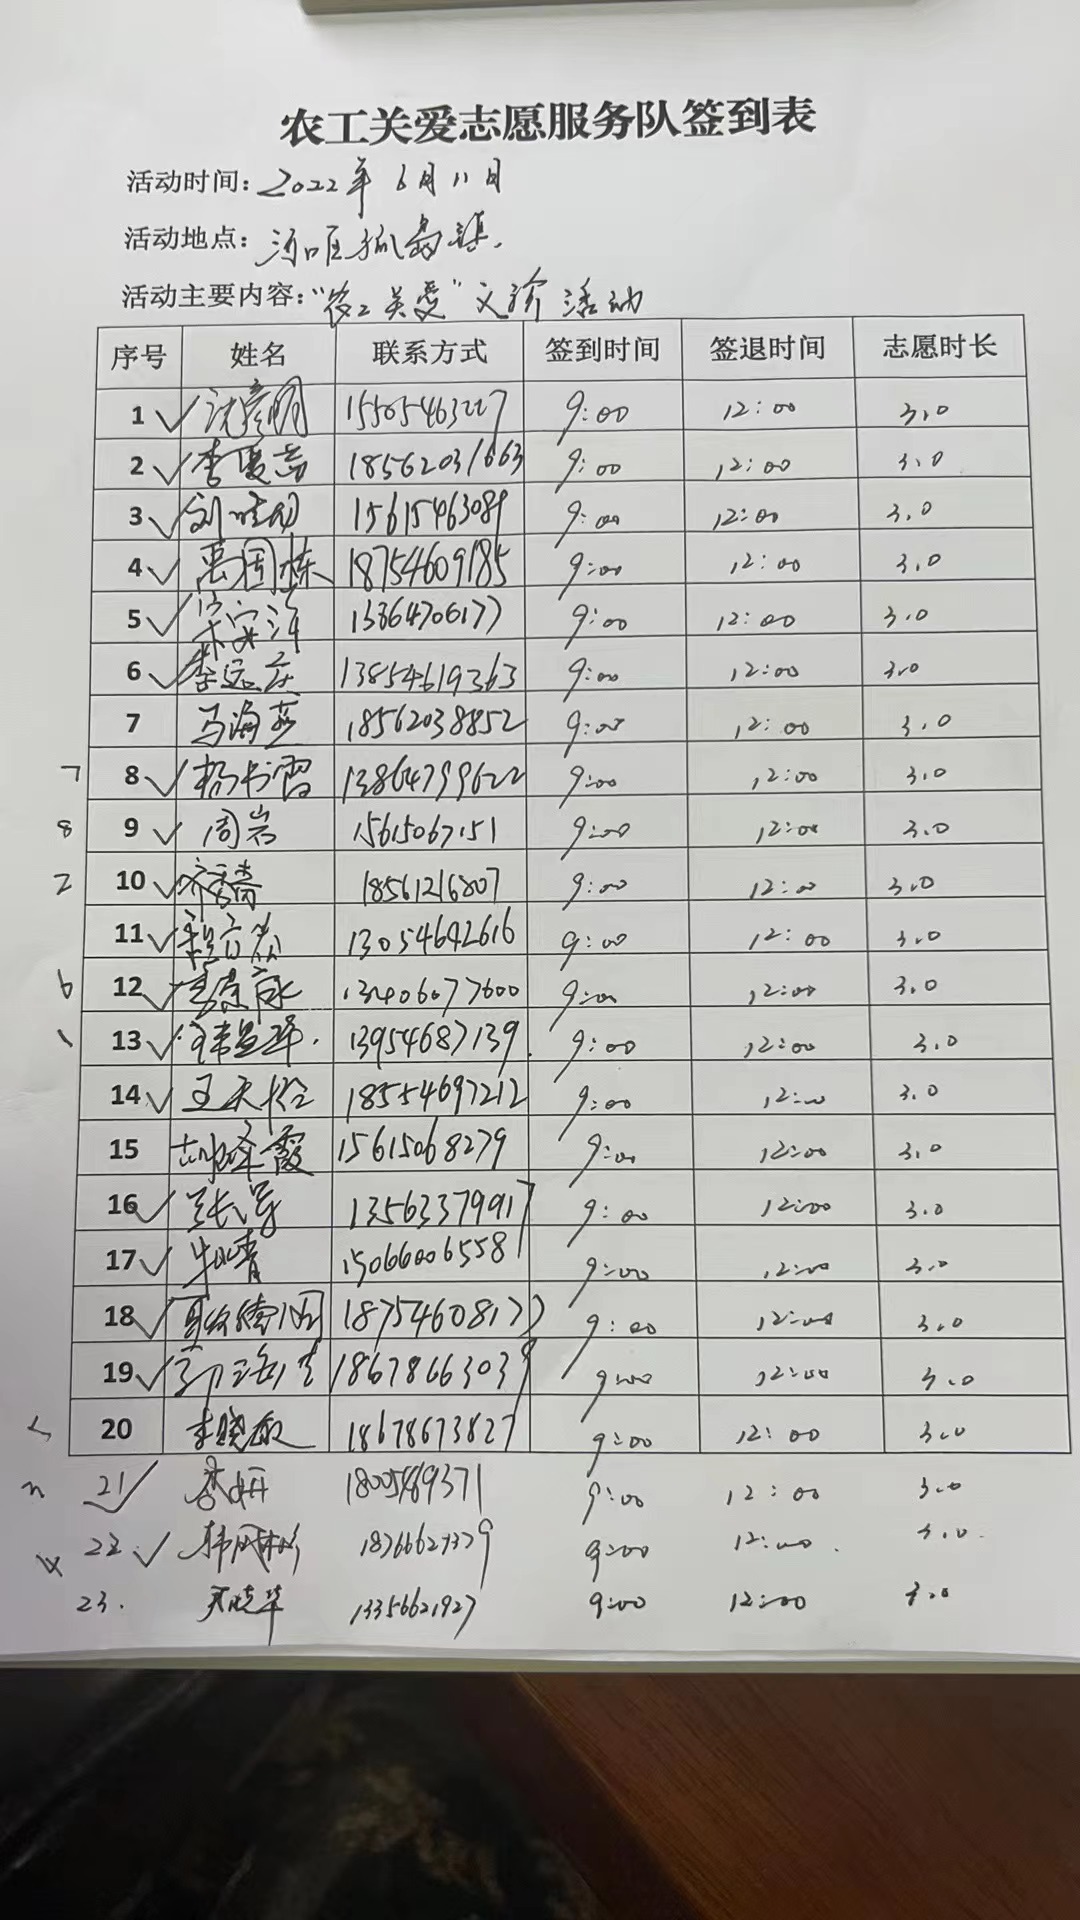 农工关爱志愿服务队签到表
活动时间：2022年6月11日
活动地点：河口区孤岛镇.
活动主要内容："农工关爱"义诊活动
序号 姓名 联系方式 签到时间 签退时间 志愿时长
1 ✓ 沈彦明 15505463227 9:00 12:00 3.0
2 ✓ 李 18562031663 9:00 12:00 3.0
3 ✓ 刘 15615463089 9:00 12:00 3.0
4 ✓ 禹国栋 18754609185 9:00 12:00 3.0
5 ✓ 13864706177 9:00 12:00 3.0
6 ✓ 李远庆 13854619363 9:00 12:00 3.0
7 马海燕 18562038852 9:00 12:00 3.0
7 8 ✓ 杨书雷 13864799622 9:00 12:00 3.0
8 9 ✓ 周岩 15615067151 9:00 12:00 3.0
2 10 ✓ 18561216807 9:00 12:00 3.0
11 ✓ 13054642616 9:00 12:00 3.0
6 12 ✓ 13406077600 9:00 12:00 3.0
1 13 ✓ 13954687139. 9:00 12:00 3.0
14 ✓ 王天 18554697212 9:00 12:00 3.0
15 胡峰霞 15615068279 9:00 12:00 3.0
16 ✓ 张 13563379917 9:00 12:00 3.0
17 ✓ 牛晓青 15066006558 9:00 12:00 3.0
18 ✓ 18754608177 9:00 12:00 3.0
19 ✓ 18678663039 9:00 12:00 3.0
5 20 李晓敏 18678673827 9:00 12:00 3.0
21 ✓ 李妍 9:00 12:00 3.0
4 22 ✓ 韩凤彬 18766627379 9:00 12:00. 3.0.
23. 晓华 13356621927 9:00 12:00 3.0